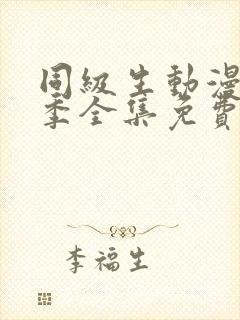 同級生動漫
季全集免費
李福生